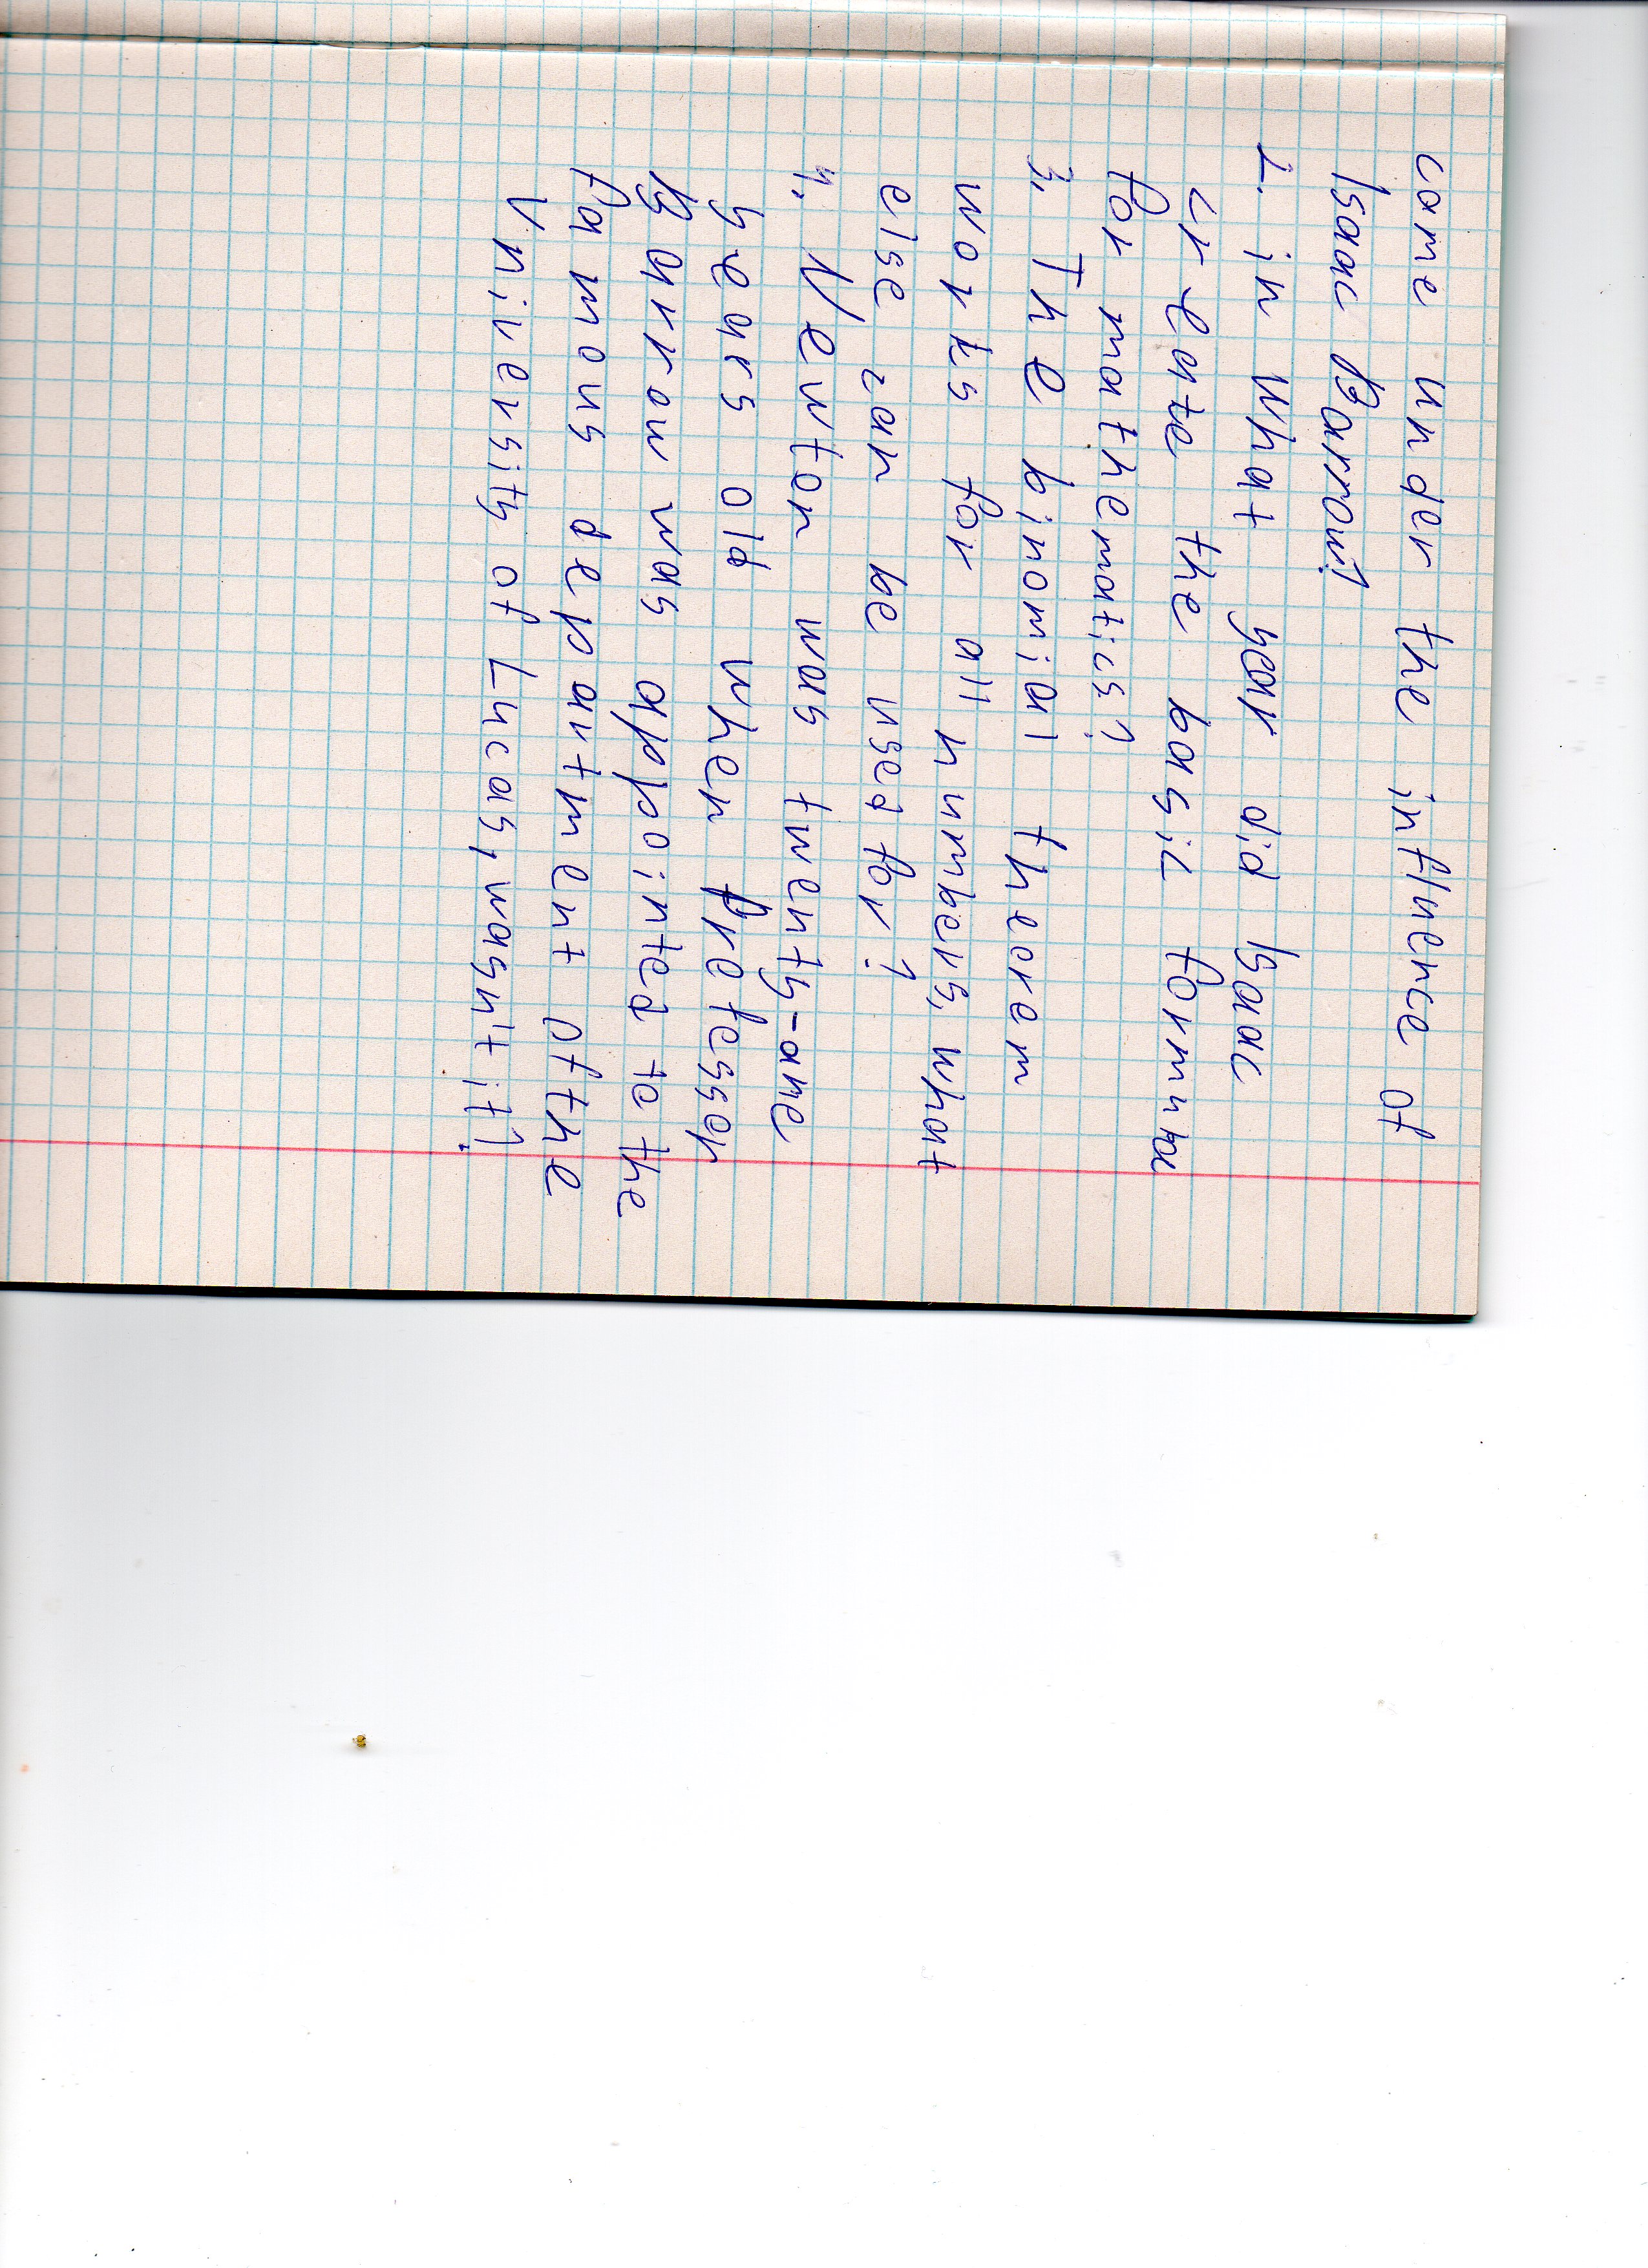 come under the influence of
Isaac Barrow?
2. in what year did Isaac
create the basic formula
for mathematics?
3. The binomial theorem
works for all numbers, what
else can be used for?
4. Newton was twenty-one
years old when Professor
Barrow was appointed to the
famous department of the
University of Lucas, wasn't it?